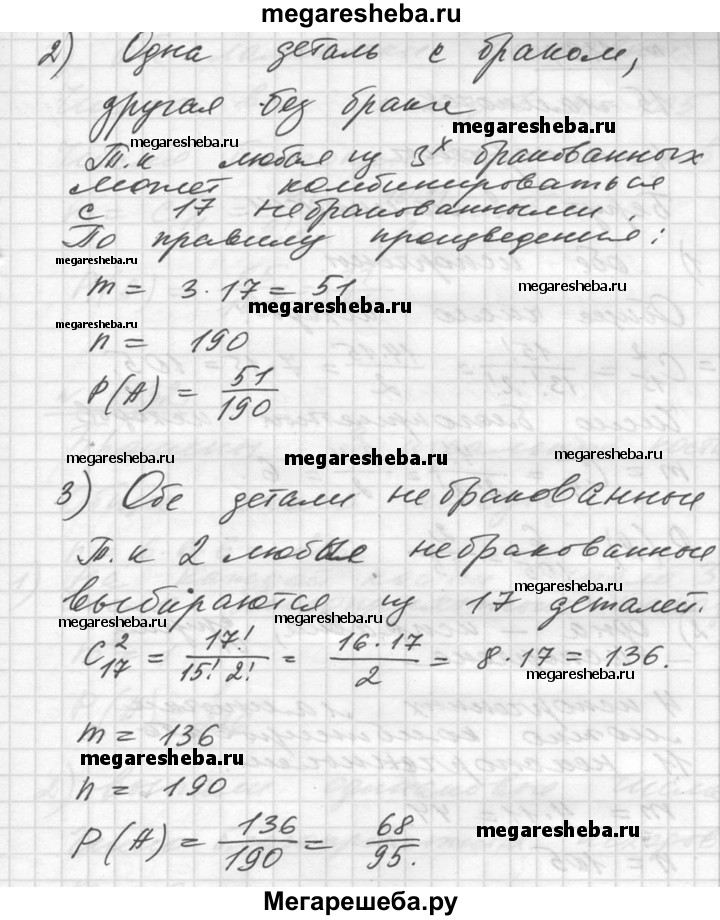 megaresheba.ru
2) Одна деталь с браком,
другая без брака
megaresheba.ru
megaresheba.ru
Т.к любая из 3х бракованных
может комбинироваться
с 17 небракованными.
По правилу произведения:
megaresheba.ru
m = 3·17 = 51
megaresheba.ru
megaresheba.ru
megaresheba.ru
n = 190
P(A) = 51/190
megaresheba.ru
megaresheba.ru
megaresheba.ru
3) Обе детали небракованные
Т.к 2 любые небракованные
megaresheba.ru
выбираются из 17 деталей.
megaresheba.ru
megaresheba.ru
C²₁₇ = 17!/15! 2! = 16·17/2 = 8·17 = 136.
megaresheba.ru
m = 136
megaresheba.ru
n = 190
P(A) = 136/190 = 68/95.
megaresheba.ru
Мегарешеба.ру